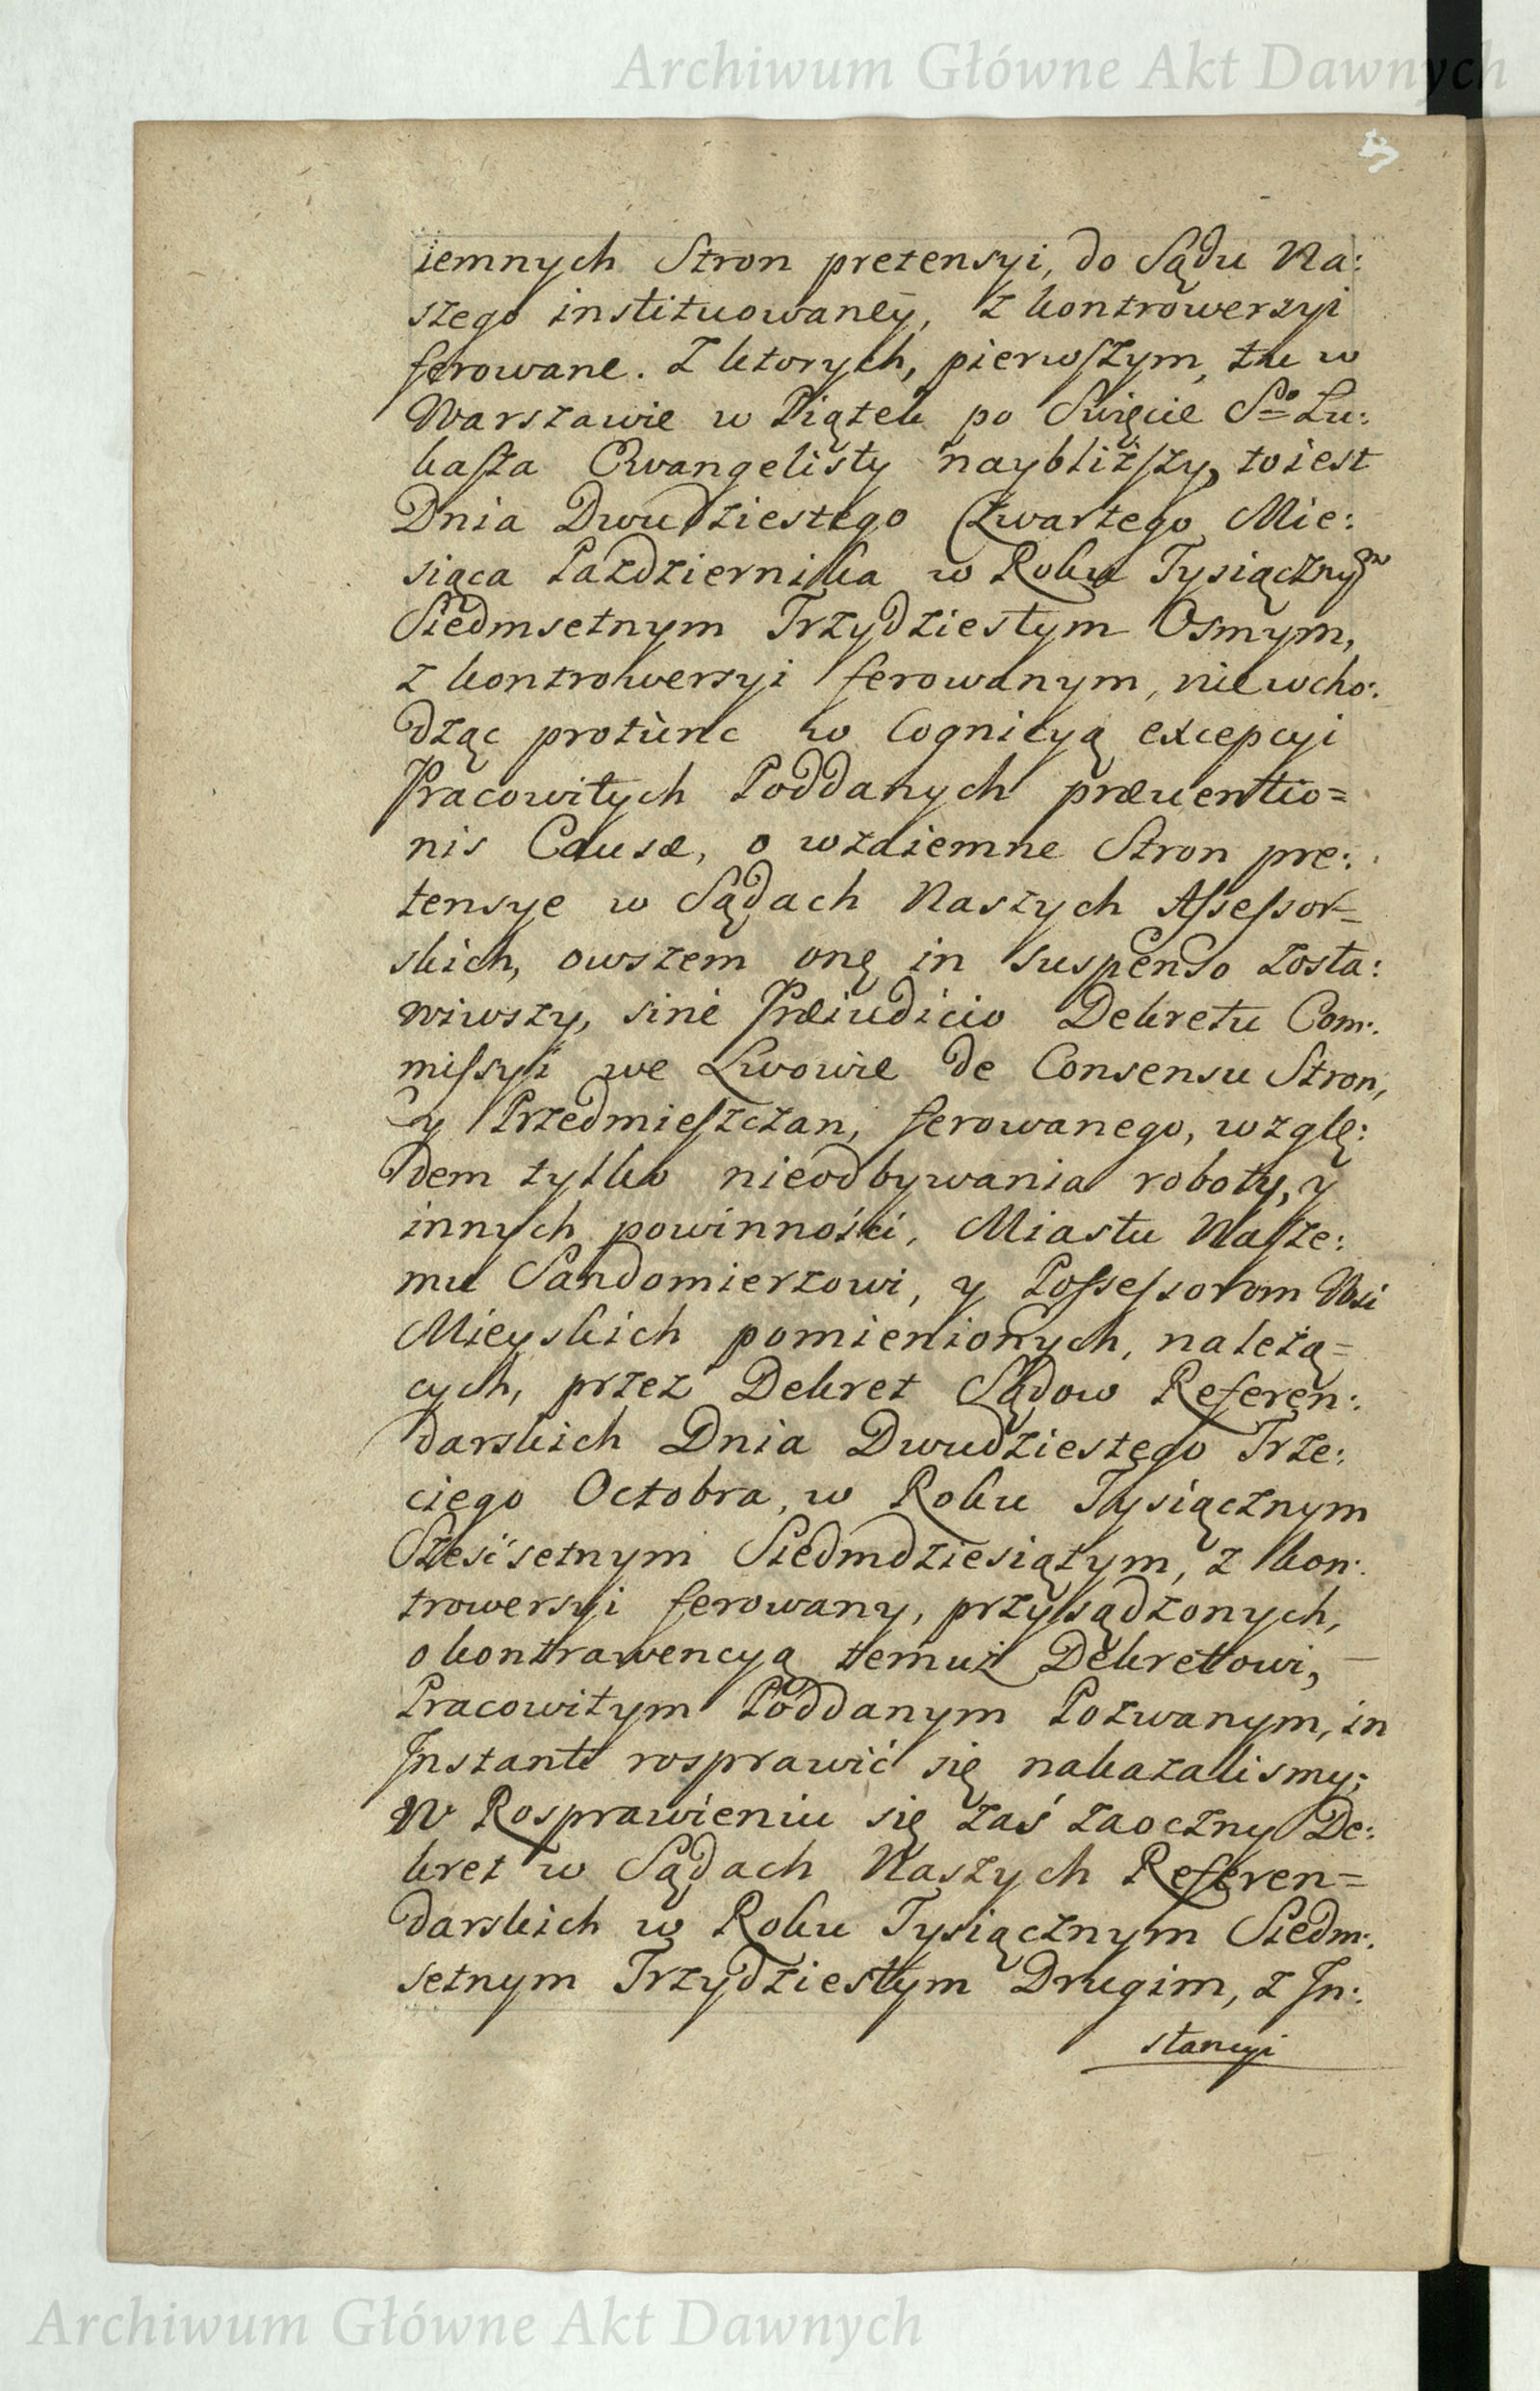 Archiwum Główne Akt Dawnych
iemnych Stron pretensyi, do Sądu Na:
szego instituowaney, z kontrowerzyi
ferowane. Z ktorych, pierwszym, tu w
Warszawie w Piątek po Swięcie Sgo Łu:
kasza Ewangelisty naybliższy, toiest
Dnia Dwudziestego Czwartego Mie:
siąca Pazdziernika w Roku Tysiącznym
Siedmsetnym Trzydziestym Osmym,
z kontrowersyi ferowanym, nie wcho:
dząc protùnc w Cognicyą excepcyi
Pracowitych Poddanych præuentio=
nis Causæ, o wzaiemne Stron pre:
tensye w Sądach Naszych Assessor=
skich, owszem onę in suspenso zosta:
wiwszy, sine Præiudicio Dekretu Com:
missyi we Lwowie de Consensu Stron,
y Przedmieszczan, ferowanego, wzglę:
dem tylko nieodbywania roboty, y
innych powinności, Miastu Nasze:
mu Sandomierzowi, y Possessorom Wsi
Mieyskich pomienionych, należą=
cych, przez Dekret Sądow Referen:
darskich Dnia Dwudziestego Trze:
ciego Octobra, w Roku Tysiącznym
Sześćsetnym Siedmdziesiątym, z kon:
trowersyi ferowany, przysądzonych,
o kontrawencyą temuż Dekretowi,
Pracowitym Poddanym Pozwanym, in
Instanti rosprawić się nakazalismy;
W Rosprawieniu się zaś zaoczny De:
kret w Sądach Naszych Referen=
darskich w Roku Tysiącznym Siedm:
setnym Trzydziestym Drugim, z In:
stancyi
Archiwum Główne Akt Dawnych